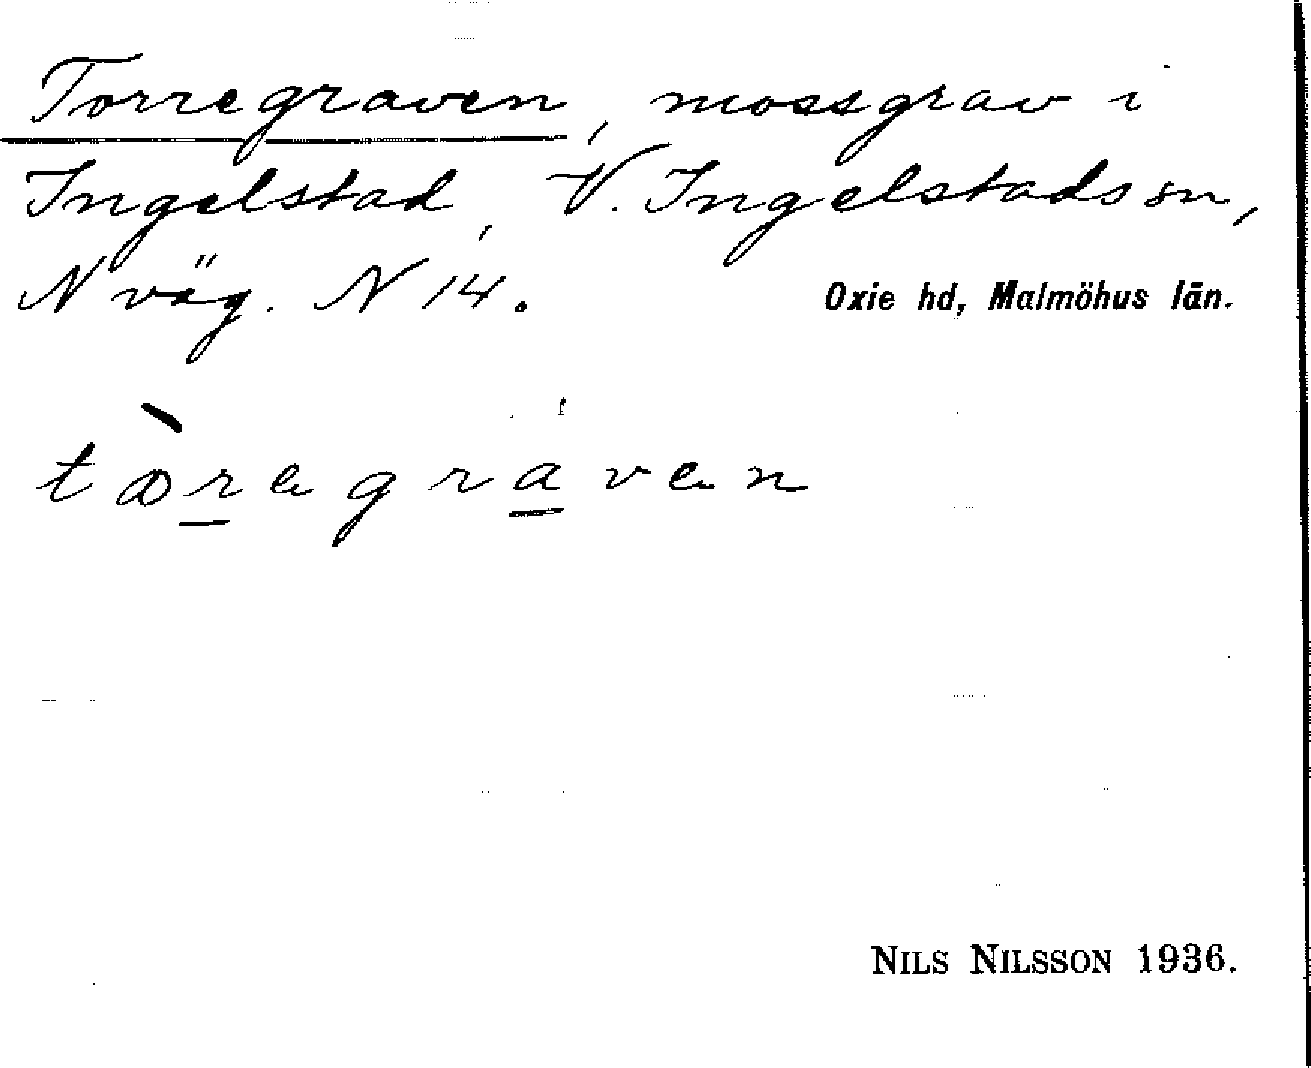 Torregraven, mossgrav i
Ingelstad, V. Ingelstads sn,
N väg. N 14.
Oxie hd, Malmöhus län.
tòregraven
NILS NILSSON 1936.